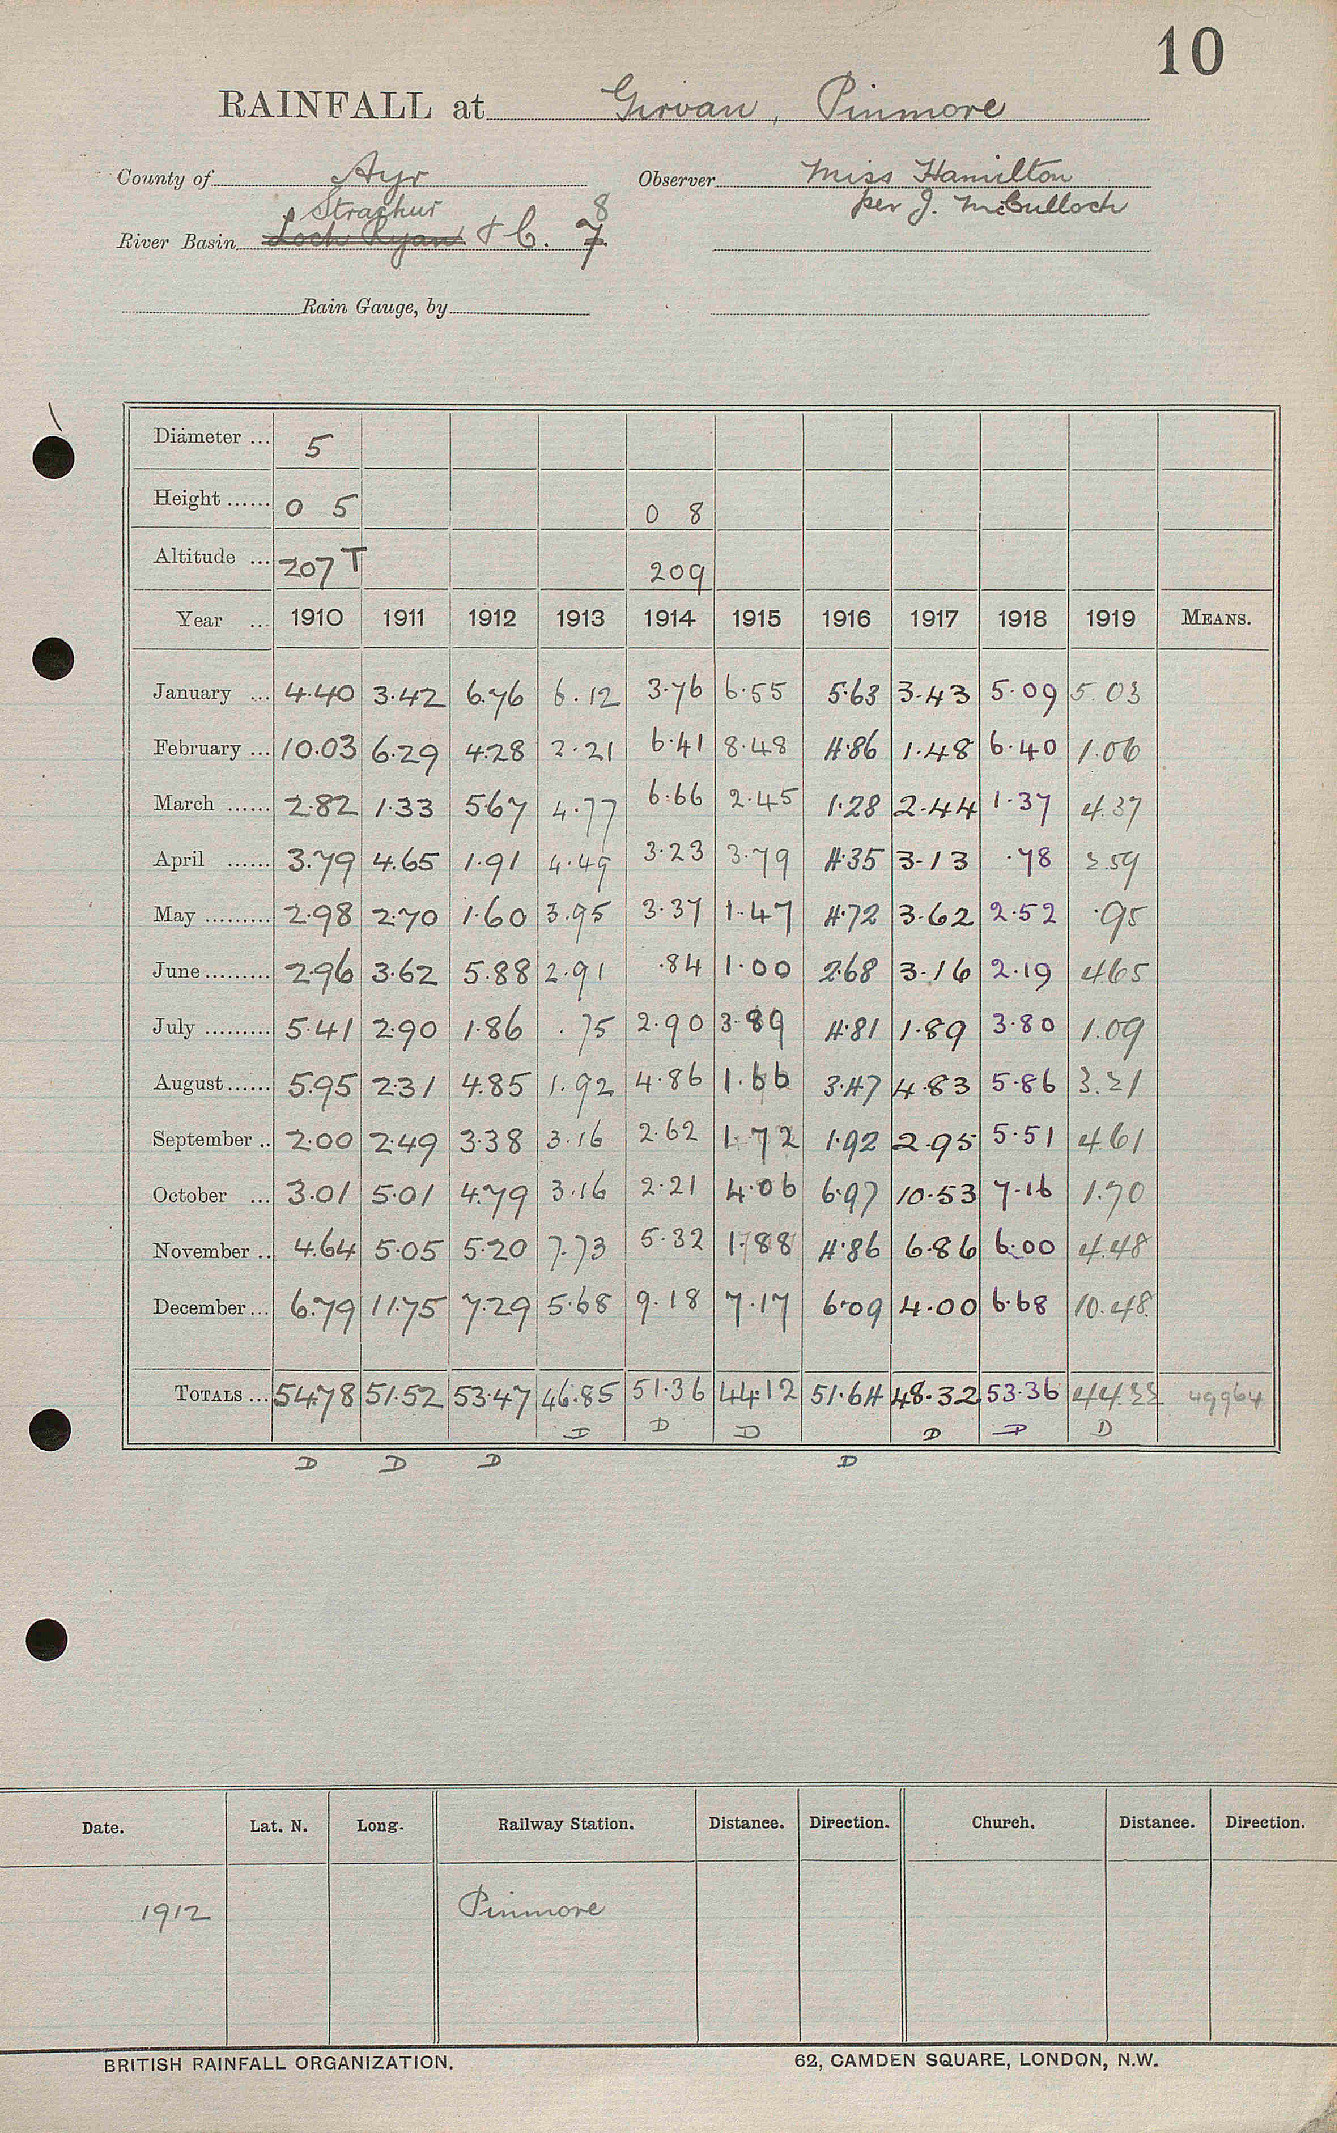 10
RAINFALL at Girvan, Pinmore
County of Ayr Observer Miss Hamilton
Strachur 8 per J. McCulloch
River Basin Loch Ryan & C. 7
Rain Gauge, by
Diameter ... 5
Height ...... 0 5 0 8
Altitude ... 207 T 209
Year ... 1910 1911 1912 1913 1914 1915 1916 1917 1918 1919 MEANS.
January ... 4.40 3.42 6.76 6.12 3.76 6.55 5.63 3.43 5.09 5.03
February ... 10.03 6.29 4.28 2.21 6.41 8.48 4.86 1.48 6.40 1.06
March ...... 2.82 1.33 5.67 4.77 6.66 2.45 1.28 2.44 1.37 4.37
April ...... 3.79 4.65 1.91 4.49 3.23 3.79 4.35 3.13 .78 2.59
May ......... 2.98 2.70 1.60 3.95 3.37 1.47 4.72 3.62 2.52 .95
June ......... 2.96 3.62 5.88 2.91 .84 1.00 2.68 3.16 2.19 4.65
July ......... 5.41 2.90 1.86 .75 2.90 3.89 4.81 1.89 3.80 1.09
August ...... 5.95 2.31 4.85 1.92 4.86 1.66 3.47 4.83 5.86 3.21
September .. 2.00 2.49 3.38 3.16 2.62 1.72 1.92 2.95 5.51 4.61
October ... 3.01 5.01 4.79 3.16 2.21 4.06 6.97 10.53 7.16 1.70
November .. 4.64 5.05 5.20 7.73 5.32 1.88 4.86 6.86 6.00 4.48
December ... 6.79 11.75 7.29 5.68 9.18 7.17 6.09 4.00 6.68 10.48
TOTALS ... 54.78 51.52 53.47 46.85 51.36 44.12 51.64 48.32 53.36 44.22 49964
D D D D D D
D D D D
Date. Lat. N. Long. Railway Station. Distance. Direction. Church. Distance. Direction.
1912 Pinmore
BRITISH RAINFALL ORGANIZATION. 62, CAMDEN SQUARE, LONDON, N.W.